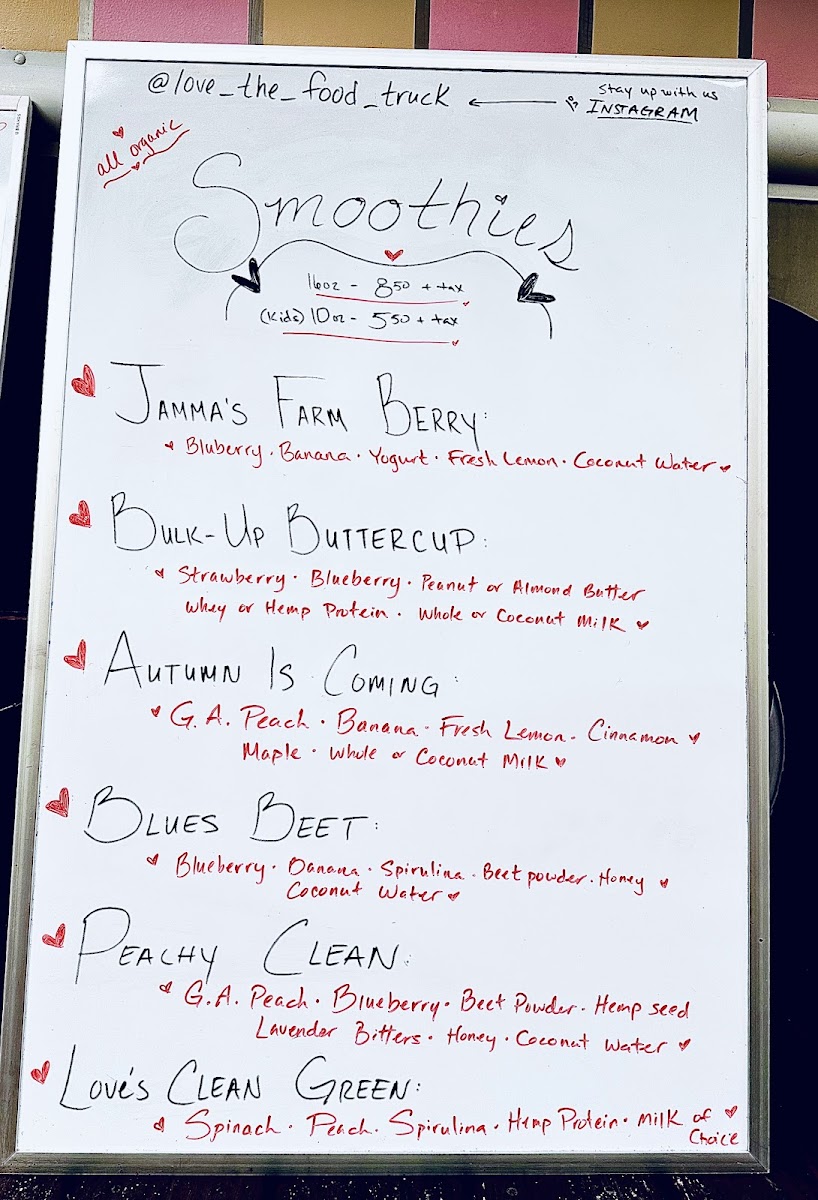 @love_the_food_truck
Stay up with us
INSTAGRAM
all organic
Smoothies
16oz - 850 + tax
(Kids) 10oz - 550 + tax
JAMMA'S FARM BERRY:
Bluberry · Banana · Yogurt · Fresh Lemon · Coconut Water
BULK-UP BUTTERCUP:
Strawberry · Blueberry · Peanut or Almond Butter
Whey or Hemp Protein · Whole or Coconut Milk
AUTUMN IS COMING:
G.A. Peach · Banana · Fresh Lemon · Cinnamon
Maple · Whole or Coconut Milk
BLUES BEET:
Blueberry · Banana · Spirulina · Beet powder · Honey
Coconut Water
PEACHY CLEAN:
G.A. Peach · Blueberry · Beet Powder · Hemp seed
Lavender Bitters · Honey · Coconut Water
LOVE'S CLEAN GREEN:
Spinach · Peach · Spirulina · Hemp Protein · Milk of
Choice